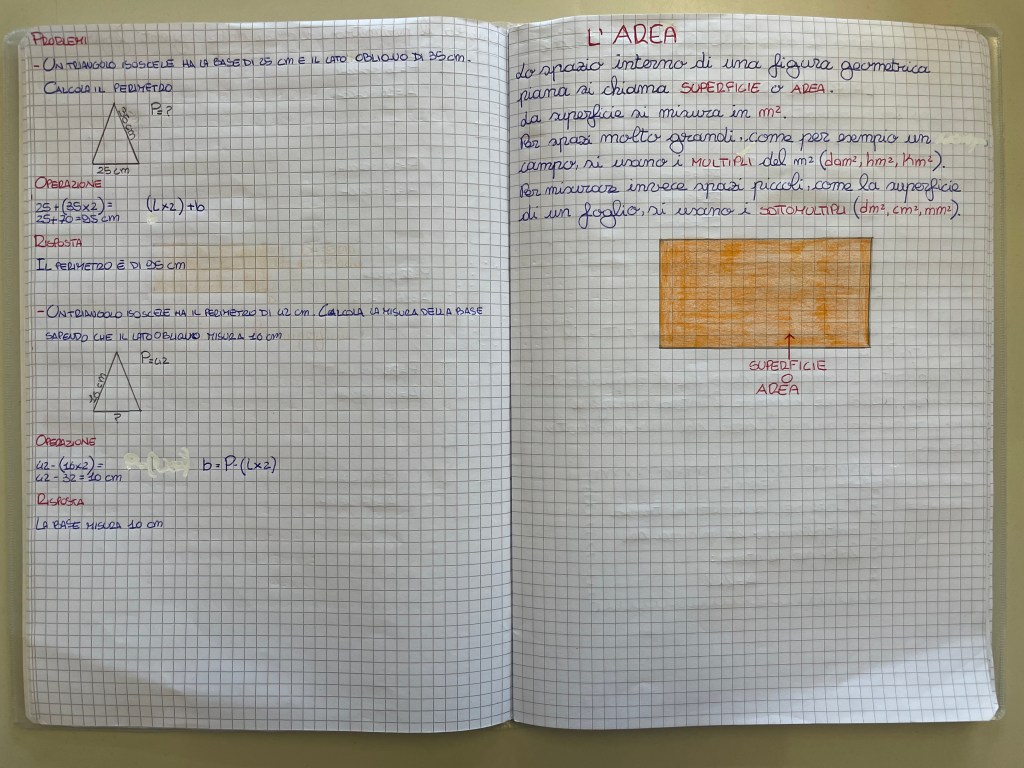 PROBLEMI
- UN TRIANGOLO ISOSCELE HA LA BASE DI 25 cm E IL LATO OBLIQUO DI 35 cm.
CALCOLA IL PERIMETRO
P= ?
35 cm
25 cm
OPERAZIONE
25 + (35x2) =
25 + 70 = 95 cm
(Lx2)+b
RISPOSTA
IL PERIMETRO È DI 95 cm
- UN TRIANGOLO ISOSCELE HA IL PERIMETRO DI 42 cm. CALCOLA LA MISURA DELLA BASE
SAPENDO CHE IL LATO OBLIQUO MISURA 10 cm
P=42
cm
?
OPERAZIONE
42 - (16x2) =
42 - 32 = 10 cm
b = P - (Lx2)
RISPOSTA
LA BASE MISURA 10 cm
L'AREA
Lo spazio interno di una figura geometrica
piana si chiama SUPERFICIE o AREA.
La superficie si misura in m².
Per spazi molto grandi, come per esempio un
campo, si usano i MULTIPLI del m² (dam², hm², Km²).
Per misurare invece spazi piccoli, come la superficie
di un foglio, si usano i SOTTOMULTIPLI (dm², cm², mm²).
SUPERFICIE
O
AREA